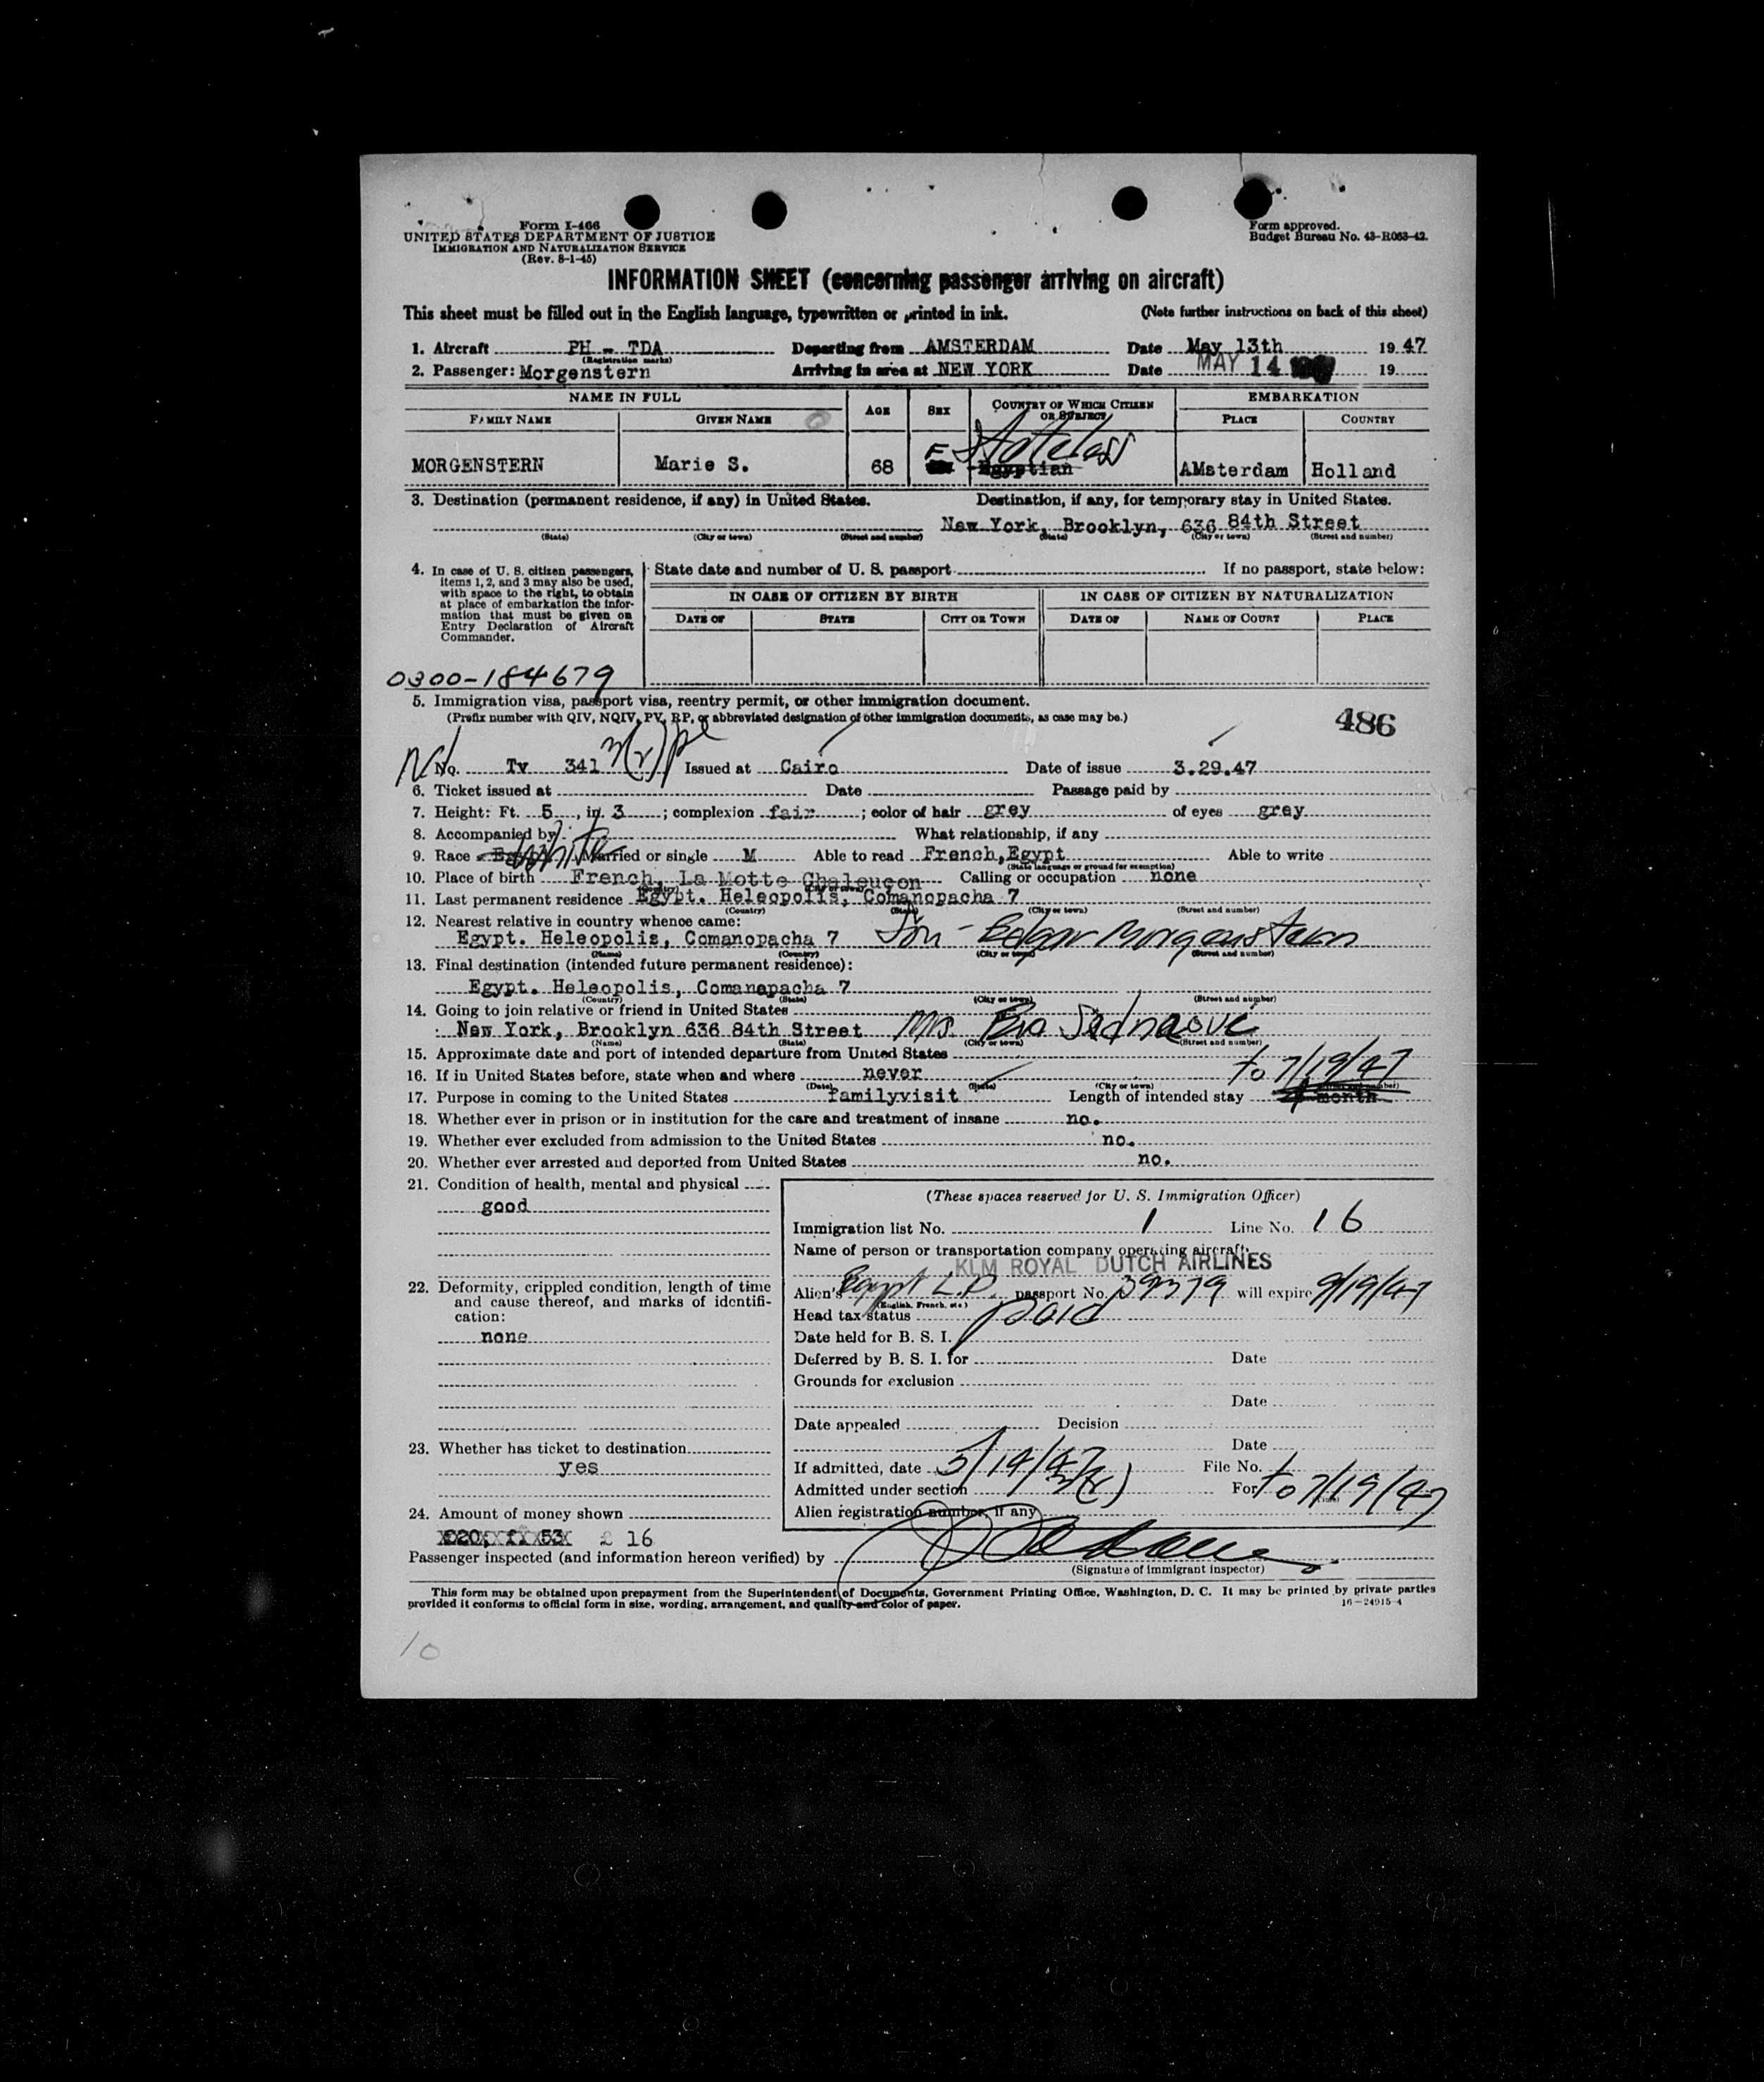 Form I-466
UNITED STATES DEPARTMENT OF JUSTICE
IMMIGRATION AND NATURALIZATION SERVICE
(Rev. 8-1-45)
Form approved.
Budget Bureau No. 43-R063-42.
INFORMATION SHEET (concerning passenger arriving on aircraft)
This sheet must be filled out in the English language, typewritten or printed in ink. (Note further instructions on back of this sheet)
1. Aircraft PH - TDA Departing from AMSTERDAM Date May 13th 19 47
(Registration marks)
2. Passenger: Morgenstern Arriving in area at NEW YORK Date MAY 14 19
NAME IN FULL AGE SEX COUNTRY OF WHICH CITIZEN OR SUBJECT EMBARKATION
FAMILY NAME GIVEN NAME PLACE COUNTRY
MORGENSTERN Marie S. 68 F Stateless Egyptian AMsterdam Holland
3. Destination (permanent residence, if any) in United States. Destination, if any, for temporary stay in United States.
New York, Brooklyn, 636 84th Street
(State) (City or town) (Street and number) (State) (City or town) (Street and number)
4. In case of U. S. citizen passengers, items 1, 2, and 3 may also be used, with space to the right, to obtain at place of embarkation the information that must be given on Entry Declaration of Aircraft Commander.
State date and number of U. S. passport If no passport, state below:
IN CASE OF CITIZEN BY BIRTH IN CASE OF CITIZEN BY NATURALIZATION
DATE OF STATE CITY OR TOWN DATE OF NAME OF COURT PLACE
0300-184679
5. Immigration visa, passport visa, reentry permit, or other immigration document.
(Prefix number with QIV, NQIV, PV, RP, or abbreviated designation of other immigration documents, as case may be.)
486
No. Tv 341 3(2) Issued at Cairo Date of issue 3.29.47
6. Ticket issued at Date Passage paid by
7. Height: Ft. 5, in. 3; complexion fair; color of hair grey of eyes grey
8. Accompanied by What relationship, if any
9. Race White Married or single M Able to read French, Egypt Able to write
(State language or ground for exemption)
10. Place of birth French, La Motte Chaleuçon Calling or occupation none
11. Last permanent residence Egypt. Heleopolis, Comanopacha 7
(Country) (State) (City or town) (Street and number)
12. Nearest relative in country whence came:
Egypt. Heleopolis, Comanopacha 7 Son - Edgar Morgenstern
(Name) (Country) (City or town) (Street and number)
13. Final destination (intended future permanent residence):
Egypt. Heleopolis, Comanapacha 7
(Country) (State) (City or town) (Street and number)
14. Going to join relative or friend in United States
New York, Brooklyn 636 84th Street Mrs.
(Name) (State) (City or town) (Street and number)
15. Approximate date and port of intended departure from United States
16. If in United States before, state when and where never to 7/19/47
(Date) (State) (City or town) (Street and number)
17. Purpose in coming to the United States familyvisit Length of intended stay month
18. Whether ever in prison or in institution for the care and treatment of insane no.
19. Whether ever excluded from admission to the United States no.
20. Whether ever arrested and deported from United States no.
21. Condition of health, mental and physical
good
22. Deformity, crippled condition, length of time and cause thereof, and marks of identification:
none
23. Whether has ticket to destination
yes
24. Amount of money shown
£ 16
(These spaces reserved for U. S. Immigration Officer)
Immigration list No. 1 Line No. 16
Name of person or transportation company operating aircraft
KLM ROYAL DUTCH AIRLINES
Alien's Egypt L.P. passport No. 39379 will expire 9/19/47
(English, French, etc.)
Head tax status paid
Date held for B. S. I.
Deferred by B. S. I. for Date
Grounds for exclusion
Date
Date appealed Decision
Date
If admitted, date 5/14/47 File No.
Admitted under section 3(2) For to 7/19/47
Alien registration number, if any
Passenger inspected (and information hereon verified) by
(Signature of immigrant inspector)
This form may be obtained upon prepayment from the Superintendent of Documents, Government Printing Office, Washington, D. C. It may be printed by private parties
provided it conforms to official form in size, wording, arrangement, and quality and color of paper.
16-24915-4
10